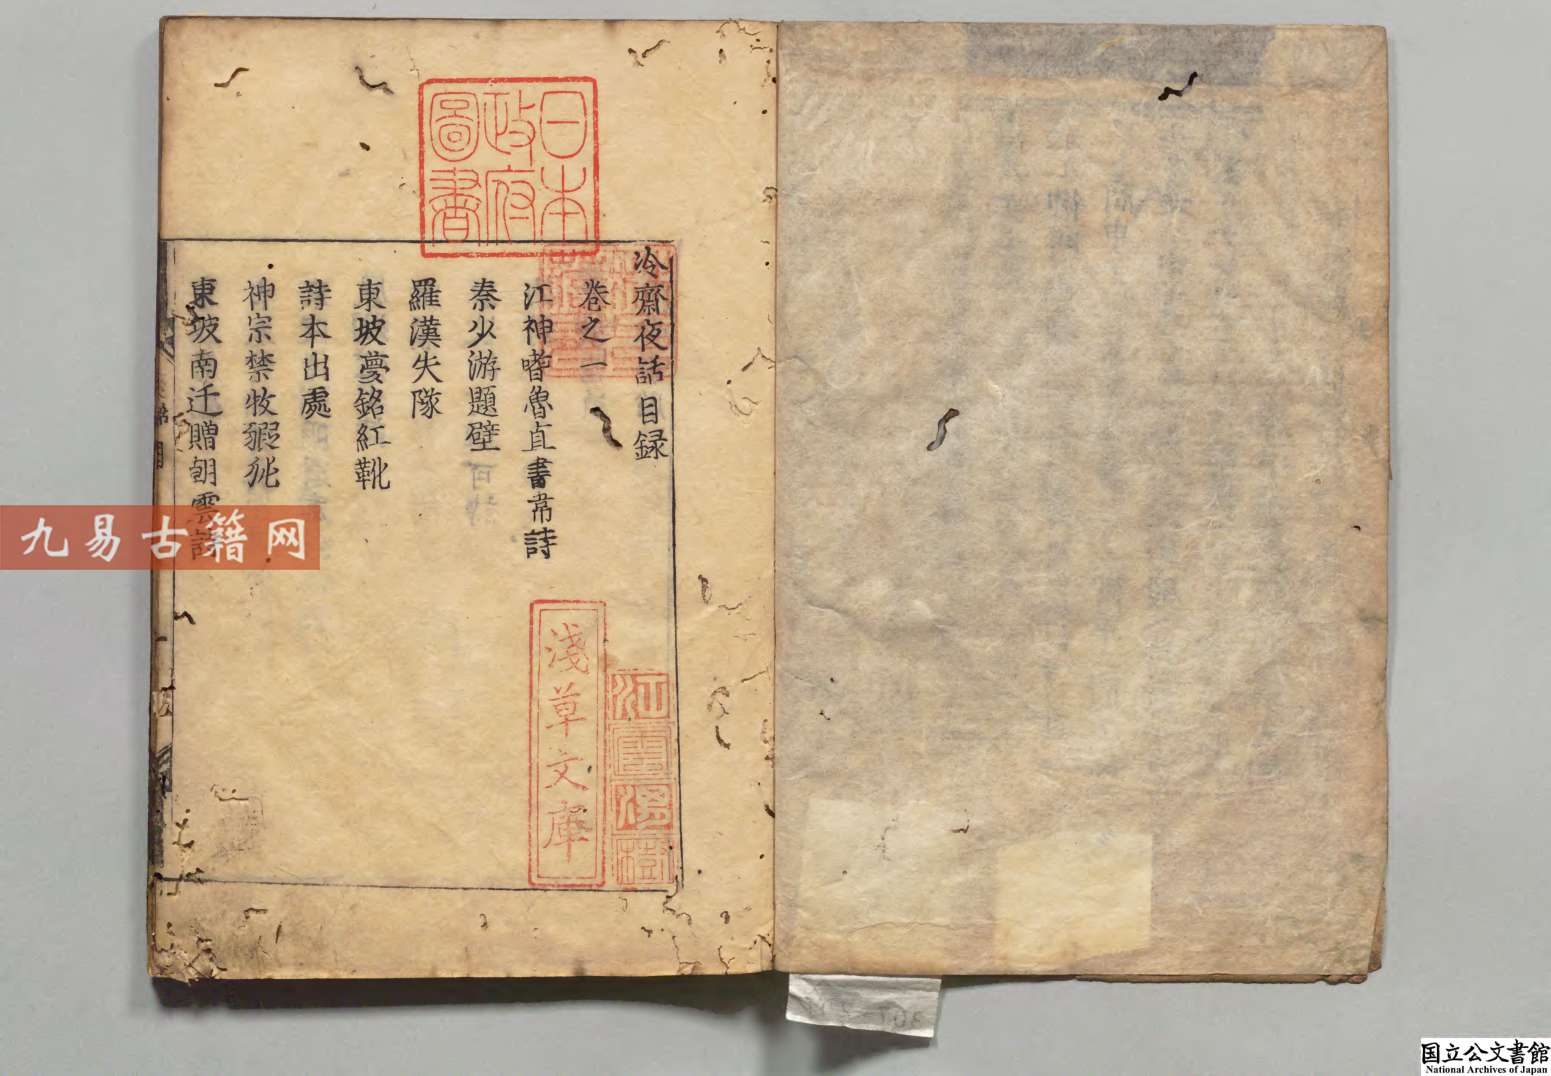 冷齋夜話目録
卷之一
江神嗜魯直書韋詩
秦少游題壁
羅漢失隊
東坡夢銘紅靴
詩本出處
神宗禁牧豭㹠
東坡南迁贈朝雲詩
日本
政府
圖書
淺草文庫
江雲渭樹
九易古籍网
国立公文書館
National Archives of Japan